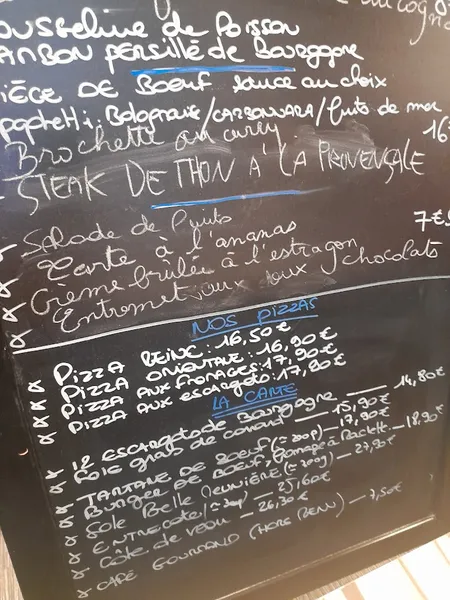 au cognac
ousseline de Poisson
AMBON PERSILLÉ de Bourgogne
IÈCE DE Bœuf sauce au choix
paghetti: Bolognaise/CARBONNARA/fruits de mer
Brochette au curry 16
STEAK DE THON A LA PROVENÇALE
Salade de Fruits 7€
Tarte à l'ananas
Crème brûlée à l'estragon
Entremet aux deux chocolats
NOS PIZZAS
PIZZA REINE: 16,50€
PIZZA ORIENTALE: 16,90€
PIZZA AUX FROMAGES: 17,90€
PIZZA AUX escargots: 17,90€
LA CARTE
12 ESCARGOTS de Bourgogne — 14,80€
Foie gras de canard — 15,90€
TARTARE DE Bœuf (≈200g) — 17,90€
BURGER DE Bœuf, fromage à Raclette — 18,90€
Sole Belle Meunière (≈300g) — 27,90€
ENTRECOTE — 25,60€
Côte de veau — 26,30€
CAFÉ GOURMAND (HORS MENU) — 7,50€